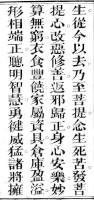 生從今以去乃至菩提念生死苦發菩
提心改惡修善返邪歸正身心安樂妙
算無窮衣食豐饒家屬資具倉庫盈溢
形相端正聰明智慧勇健威猛諸將擁